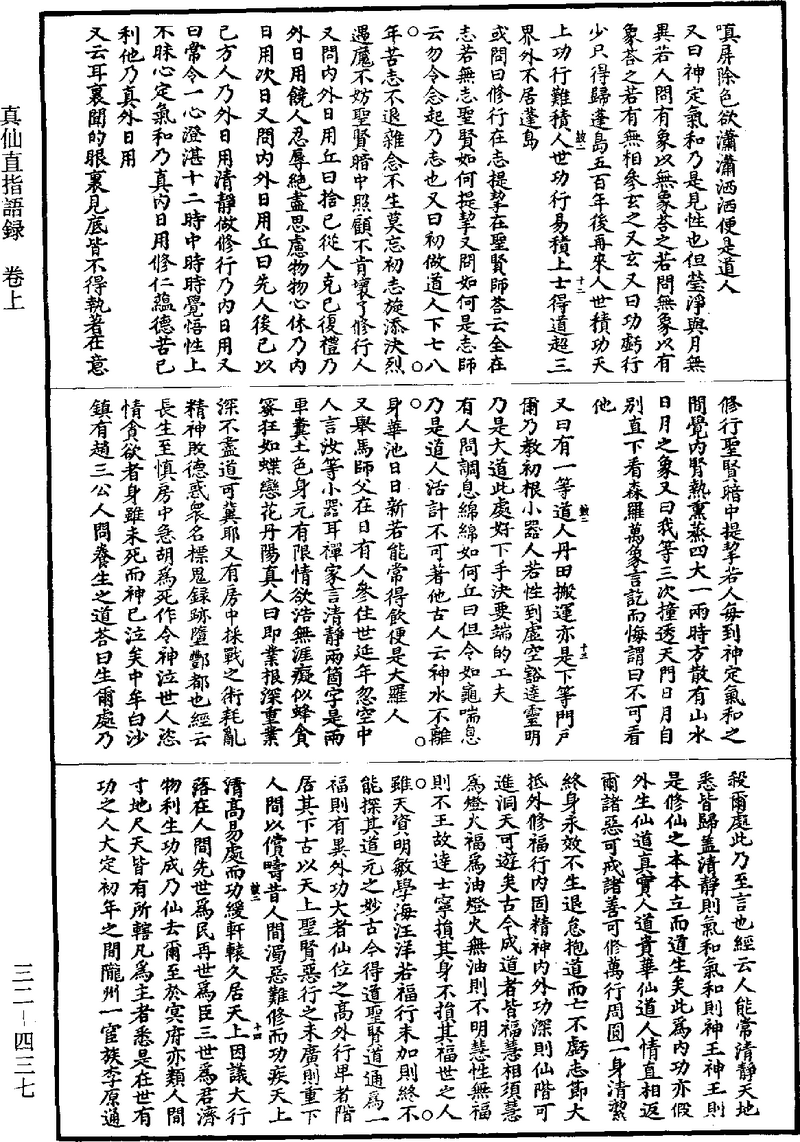 嗔屏除色欲瀟瀟洒洒便是道人
又曰神定氣和乃是見性也但瑩淨與月無
異若人問有象以無象荅之若問無象以有
象荅之若有無相參玄之又玄又曰功虧行
少只得歸蓬島五百年後再來人世積功天
上功行難積人世功行易積上士得道超三
界外不居蓬島
或問曰修行在志提挈在聖賢師荅云全在
志若無志聖賢如何提挈又問如何是志師
云勿令念起乃志也又曰初做道人下七八
年苦志不退雜念不生莫忘初志旋添決烈
遇魔不妨聖賢暗中照顧不肯壞了修行人
又問內外日用丘曰捨己從人克己復禮乃
外日用饒人忍辱絕盡思慮物物心休乃內
日用次日又問內外日用丘曰先人後己以
己方人乃外日用清靜做修行乃內日用又
曰常令一心澄湛十二時中時時覺悟性上
不昧心定氣和乃真內日用修仁蘊德苦己
利他乃真外日用
又云耳裏聞的眼裏見底皆不得執著在意
修行聖賢暗中提挈若人每到神定氣和之
間覺內腎熱熏蒸四大一兩時方散有山水
日月之象又曰我等三次撞透天門日月自
別直下看森羅萬象言訖而悔謂曰不可看
他
又曰有一等道人丹田搬運亦是下等門戶
爾乃教初根小器人若性到虛空豁達靈明
乃是大道此處好下手決要端的工夫
有人問調息綿綿如何丘曰但令如龜喘息
乃是道人活計不可著他古人云神水不離
身華池日日新若能常得飲便是大羅人
又舉馬師父在日有人參住世延年忽空中
人言汝等小器耳禪家言清靜兩箇字是兩
車糞土色身元有限情欲浩無涯癡似蜂貪
蜜狂如蝶戀花丹陽真人曰即業根深重業
深不盡道可冀耶又有房中採戰之術耗亂
精神敗德惑衆名標鬼録跡墮酆都也經云
長生至慎房中急胡為死作令神泣世人恣
情貪欲者身雖未死而神已泣矣中牟白沙
鎮有趙三公人問養生之道荅曰生爾處乃
殺爾處此乃至言也經云人能常清靜天地
悉皆歸蓋清靜則氣和氣和則神王神王則
是修仙之本本立而道生矣此為內功亦假
外生仙道真實人道貴華仙道人情直相返
爾諸惡可戒諸善可修萬行周圓一身清潔
終身永效不生退怠抱道而亡不虧志節大
抵外修福行內固精神內外功深則仙階可
進洞天可遊矣古今成道者皆福慧相須慧
為燈火福為油燈火無油則不明慧性無福
則不王故達士寧損其身不損其福世之人
雖天資明敏學海汪洋若福行未加則終不
能探其道元之妙古今得道聖賢道通為一
福則有異外功大者仙位之高外行卑者階
居其下古以天上聖賢惡行之未廣則重下
人間以償疇昔人間濁惡難修而功疾天上
清高易處而功緩軒轅久居天上因議大行
落在人間先世為民再世為臣三世為君濟
物利生功成乃仙去爾至於冥府亦類人間
寸地尺天皆有所轄凡為主者悉是在世有
功之人大定初年之間隴州一宦族李原通
真仙直指語録　卷上
三二－四三七